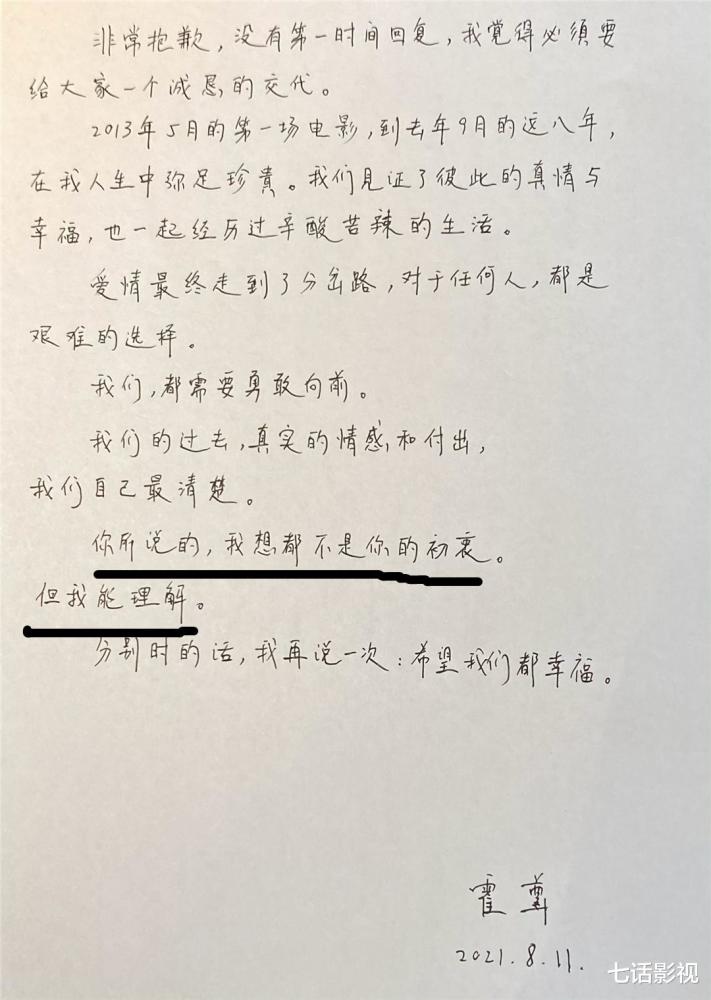 非常抱歉，没有第一时间回复，我覺得必须要
给大家一个诚恳的交代。
2013年5月的第一场电影，到去年9月的近八年，
在我人生中弥足珍貴。我们见证了彼此的真情与
幸福，也一起经历过辛酸苦辣的生活。
爱情最终走到了分岔路，对于任何人，都是
艰难的选择。
我们，都需要勇敢向前。
我们的过去，真实的情感和付出，
我们自己最清楚。
你所说的，我想都不是你的初衷。
但我能理解。
分别时的话，我再说一次：希望我们都幸福。
霍尊
2021.8.11.
七话影视